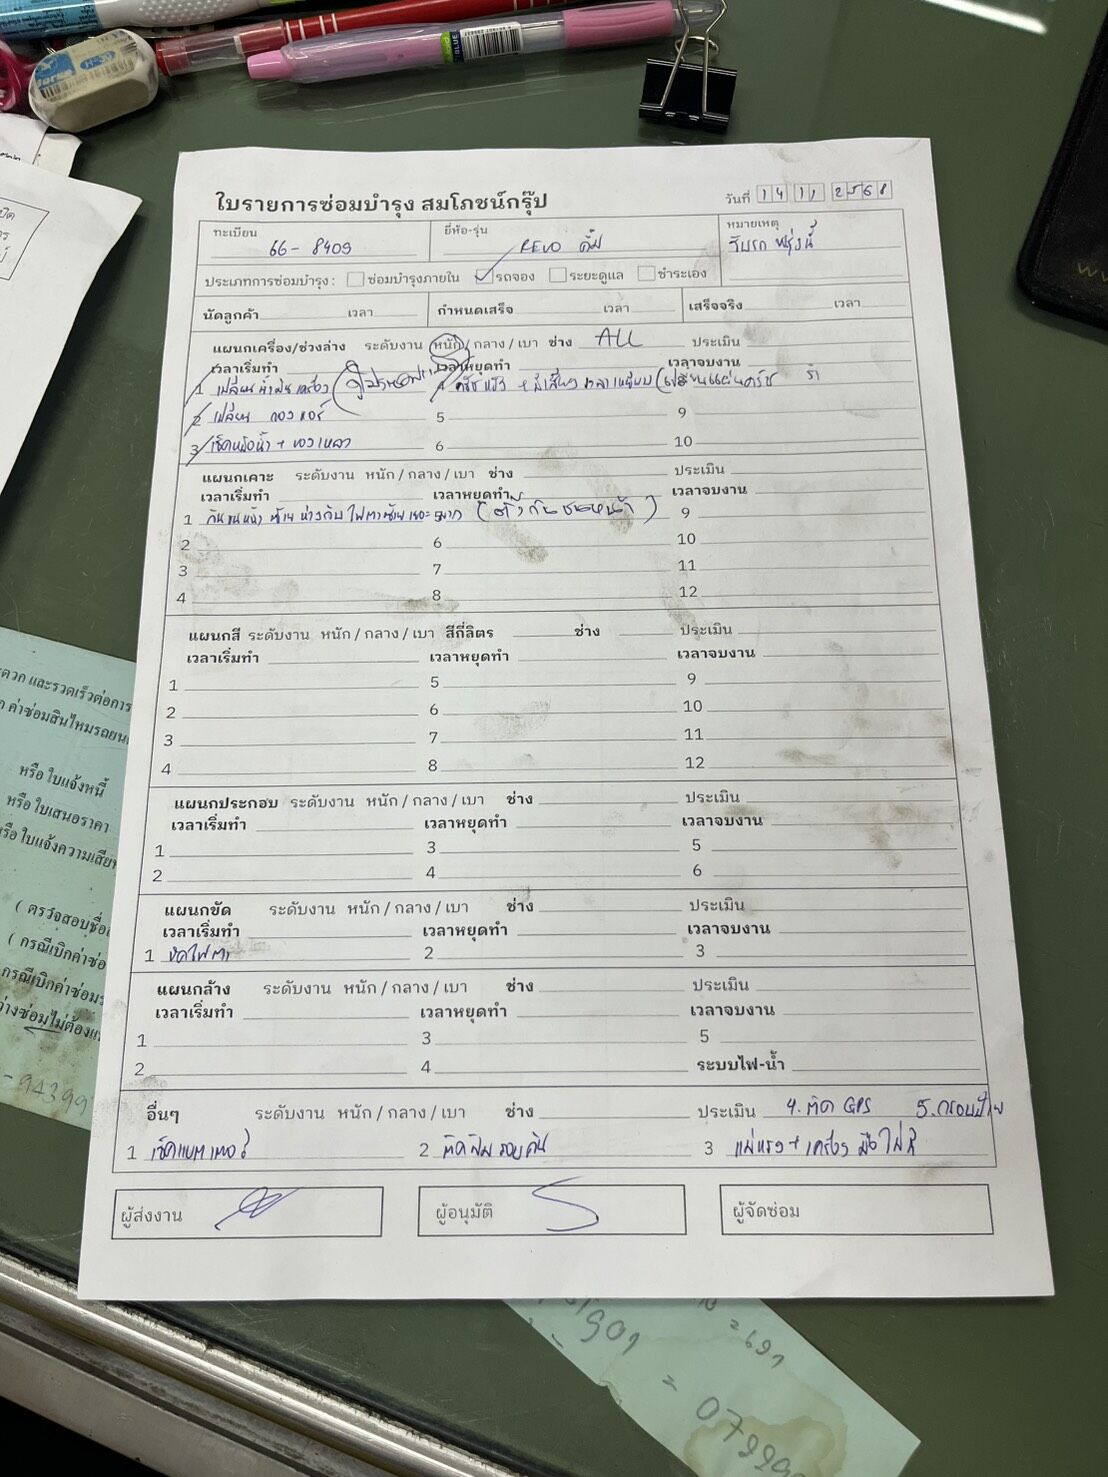 ใบรายการซ่อมบำรุง สมโภชน์กรุ๊ป
วันที่ 14 11 2568
ทะเบียน 66-8409
ยี่ห้อ-รุ่น REVO
หมายเหตุ รับรถ พรุ่งนี้
ประเภทการซ่อมบำรุง : ซ่อมบำรุงภายใน รถจอง ระยะดูแล ชำระเอง
นัดลูกค้า เวลา กำหนดเสร็จ เวลา เสร็จจริง เวลา
แผนกเครื่อง/ช่วงล่าง ระดับงาน หนัก / กลาง / เบา ช่าง ALL ประเมิน
เวลาเริ่มทำ เวลาหยุดทำ เวลาจบงาน
1 เปลี่ยนน้ำมันเครื่อง
2 เปลี่ยน กรองแอร์ 5 9
3 เช็คหม้อน้ำ + ของเหลว 6 10
แผนกเคาะ ระดับงาน หนัก / กลาง / เบา ช่าง ประเมิน
เวลาเริ่มทำ เวลาหยุดทำ เวลาจบงาน
1 กันชนหน้า ซ้าย ห่างกับ ไฟตาซ้าย เยอะ มาก ( ตั้งกันชนหน้า ) 9
2 6 10
3 7 11
4 8 12
แผนกสี ระดับงาน หนัก / กลาง / เบา สีกี่ลิตร ช่าง ประเมิน
เวลาเริ่มทำ เวลาหยุดทำ เวลาจบงาน
1 5 9
2 6 10
3 7 11
4 8 12
แผนกประกอบ ระดับงาน หนัก / กลาง / เบา ช่าง ประเมิน
เวลาเริ่มทำ เวลาหยุดทำ เวลาจบงาน
1 3 5
2 4 6
แผนกขัด ระดับงาน หนัก / กลาง / เบา ช่าง ประเมิน
เวลาเริ่มทำ เวลาหยุดทำ เวลาจบงาน
1 ขัดไฟตา 2 3
แผนกล้าง ระดับงาน หนัก / กลาง / เบา ช่าง ประเมิน
เวลาเริ่มทำ เวลาหยุดทำ เวลาจบงาน
1 3 5
2 4 ระบบไฟ-น้ำ
อื่นๆ ระดับงาน หนัก / กลาง / เบา ช่าง ประเมิน 4. ติด GPS 5. กรอบป้าย
1 เช็คแบตเตอรี่ 2 ติดฟิล์มรอบคัน 3 แม่แรง + เครื่องมือ
ผู้ส่งงาน ผู้อนุมัติ ผู้จัดซ่อม
หรือ ใบแจ้งหนี้
หรือ ใบเสนอราคา